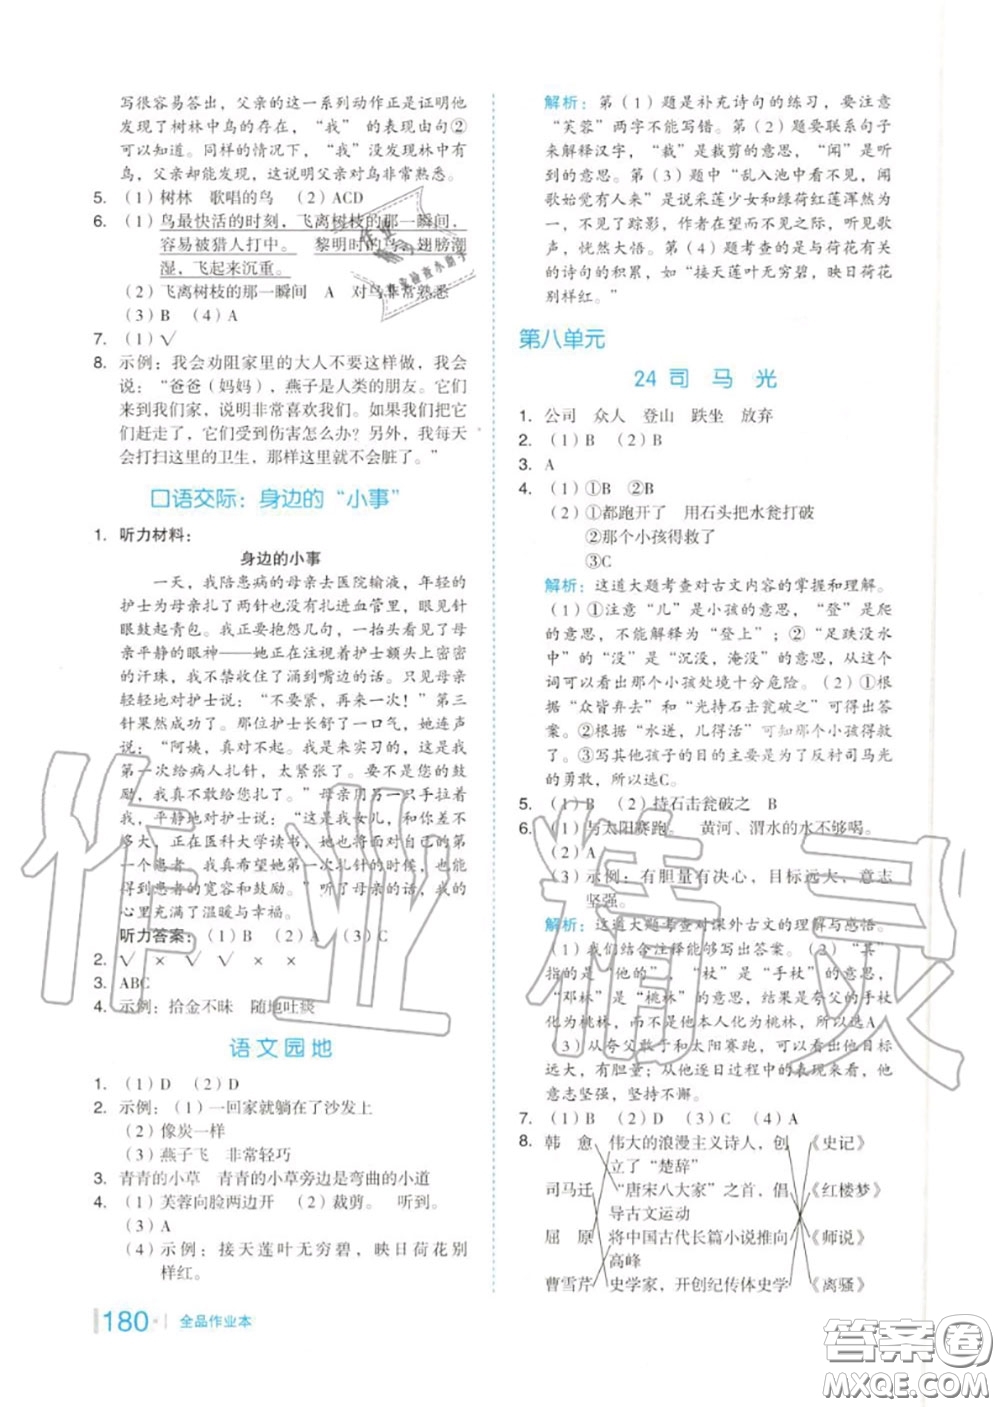 写很容易答出，父亲的这一系列动作正是证明他
发现了树林中鸟的存在，“我” 的表现由句②
可以知道。同样的情况下，“我”没发现林中有
鸟，父亲却能发现，这说明父亲对鸟非常熟悉。
5. （1）树林　歌唱的鸟　（2）ACD
6. （1）鸟最快活的时刻，飞离树枝的那一瞬间，
容易被猎人打中。　黎明时的鸟，翅膀潮
湿，飞起来沉重。
（2）飞离树枝的那一瞬间　A　对鸟非常熟悉
（3）B　（4）A
7. （1）√
8. 示例：我会劝阻家里的大人不要这样做，我会
说：“爸爸（妈妈），燕子是人类的朋友。它们
来到我们家，说明非常喜欢我们。如果我们把它
们赶走了，它们受到伤害怎么办？另外，我每天
会打扫这里的卫生，那样这里就不会脏了。”
口语交际：身边的“小事”
1. 听力材料：
身边的小事
一天，我陪患病的母亲去医院输液，年轻的
护士为母亲扎了两针也没有扎进血管里，眼见针
眼鼓起青包。我正要抱怨几句，一抬头看见了母
亲平静的眼神——她正在注视着护士额头上密密
的汗珠，我不禁收住了涌到嘴边的话。只见母亲
轻轻地对护士说：“不要紧，再来一次！”第三
针果然成功了。那位护士长舒了一口气，她连声
说：“阿姨，真对不起。我是来实习的，这是我
第一次给病人扎针，太紧张了。要不是您的鼓
励，我真不敢给您扎了。”母亲用另一只手拉着
我，平静地对护士说：“这是我女儿，和你差不多
大，正在医科大学读书，她也将面对自己的第
一个患者，我真希望她第一次扎针的时候，也能
得到患者的宽容和鼓励。”听了母亲的话，我的
心里充满了温暖与幸福。
听力答案：（1）B　（2）A　（3）C
2. √　×　√　×　×
3. ABC
4. 示例：拾金不昧　随地吐痰
语文园地
1. （1）D　（2）D
2. 示例：（1）一回家就躺在了沙发上
（2）像炭一样
（3）燕子飞　非常轻巧
3. 青青的小草　青青的小草旁边是弯曲的小道
4. （1）芙蓉向脸两边开　（2）裁剪。　听到。
（3）A
（4）示例：接天莲叶无穷碧，映日荷花别
样红。
180
全品作业本
解析：第（1）题是补充诗句的练习，要注意
“芙蓉”两字不能写错。第（2）题要联系句子
来解释汉字，“裁”是裁剪的意思，“闻”是听
到的意思。第（3）题中“乱入池中看不见，闻
歌始觉有人来”是说采莲少女和绿荷红莲浑然为
一，不见了踪影，作者在望而不见之际，听见歌
声，恍然大悟。第（4）题考查的是与荷花有关
的诗句的积累，如“接天莲叶无穷碧，映日荷花
别样红。”
第八单元
24 司 马 光
1. 公司　众人　登山　跌坐　放弃
2. （1）B　（2）B
3. A
4. （1）①B　②B
（2）①都跑开了　用石头把水瓮打破
②那个小孩得救了
③C
解析：这道大题考查对古文内容的掌握和理解。
（1）①注意“儿”是小孩的意思，“登”是爬
的意思，不能解释为“登上”；②“足跌没水
中”的“没”是“沉没，淹没”的意思，从这个
词可以看出那个小孩处境十分危险。（2）①根
据“众皆弃去”和“光持石击瓮破之”可得出答
案。②根据“水迸，儿得活”可知那个小孩得救
了。③写其他孩子的目的主要是为了反衬司马光
的勇敢，所以选C。
5. （1）B　（2）持石击瓮破之　B
6. （1）与太阳赛跑。　黄河、渭水的水不够喝。
（2）A
（3）示例：有胆量有决心，目标远大，意志
坚强。
解析：这道大题考查对课外古文的理解与感悟。
（1）我们结合注释能够写出答案。（2）“其”
指的是“他的”，“杖”是“手杖”的意思，
“邓林”是“桃林”的意思，结果是夸父的手杖
化为桃林，而不是他本人化为桃林，所以选A。
（3）从夸父敢于和太阳赛跑，可以看出他目标
远大，有胆量；从他逐日过程中的表现来看，他
意志坚强，坚持不懈。
7. （1）B　（2）D　（3）C　（4）A
8. 韩　愈　伟大的浪漫主义诗人，创　《史记》
立了“楚辞”
司马迁　“唐宋八大家”之首，倡　《红楼梦》
导古文运动
屈　原　将中国古代长篇小说推向　《师说》
高峰
曹雪芹　史学家，开创纪传体史学　《离骚》
作业精灵
答案圈
MXQE.COM